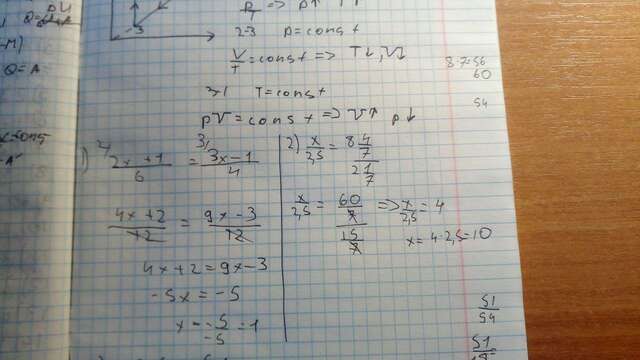 Q=
-M)
Q=A
-3
p/T => p↑
2-3 p=const
V/T=const => T↓, V↓
3-1 T=const
pV=const => V↑ p↓
8·7=56
60
54
1) 2/ (2x+1)/6 = 3/ (3x-1)/4
(4x+2)/12 = (9x-3)/12
4x+2=9x-3
-5x=-5
x=-5/-5=1
2) x/2,5 = 8 4/7 / 2 1/7
x/2,5 = 60/7 / 15/7 => x/2,5 = 4
x=4·2,5=10
51/54
51